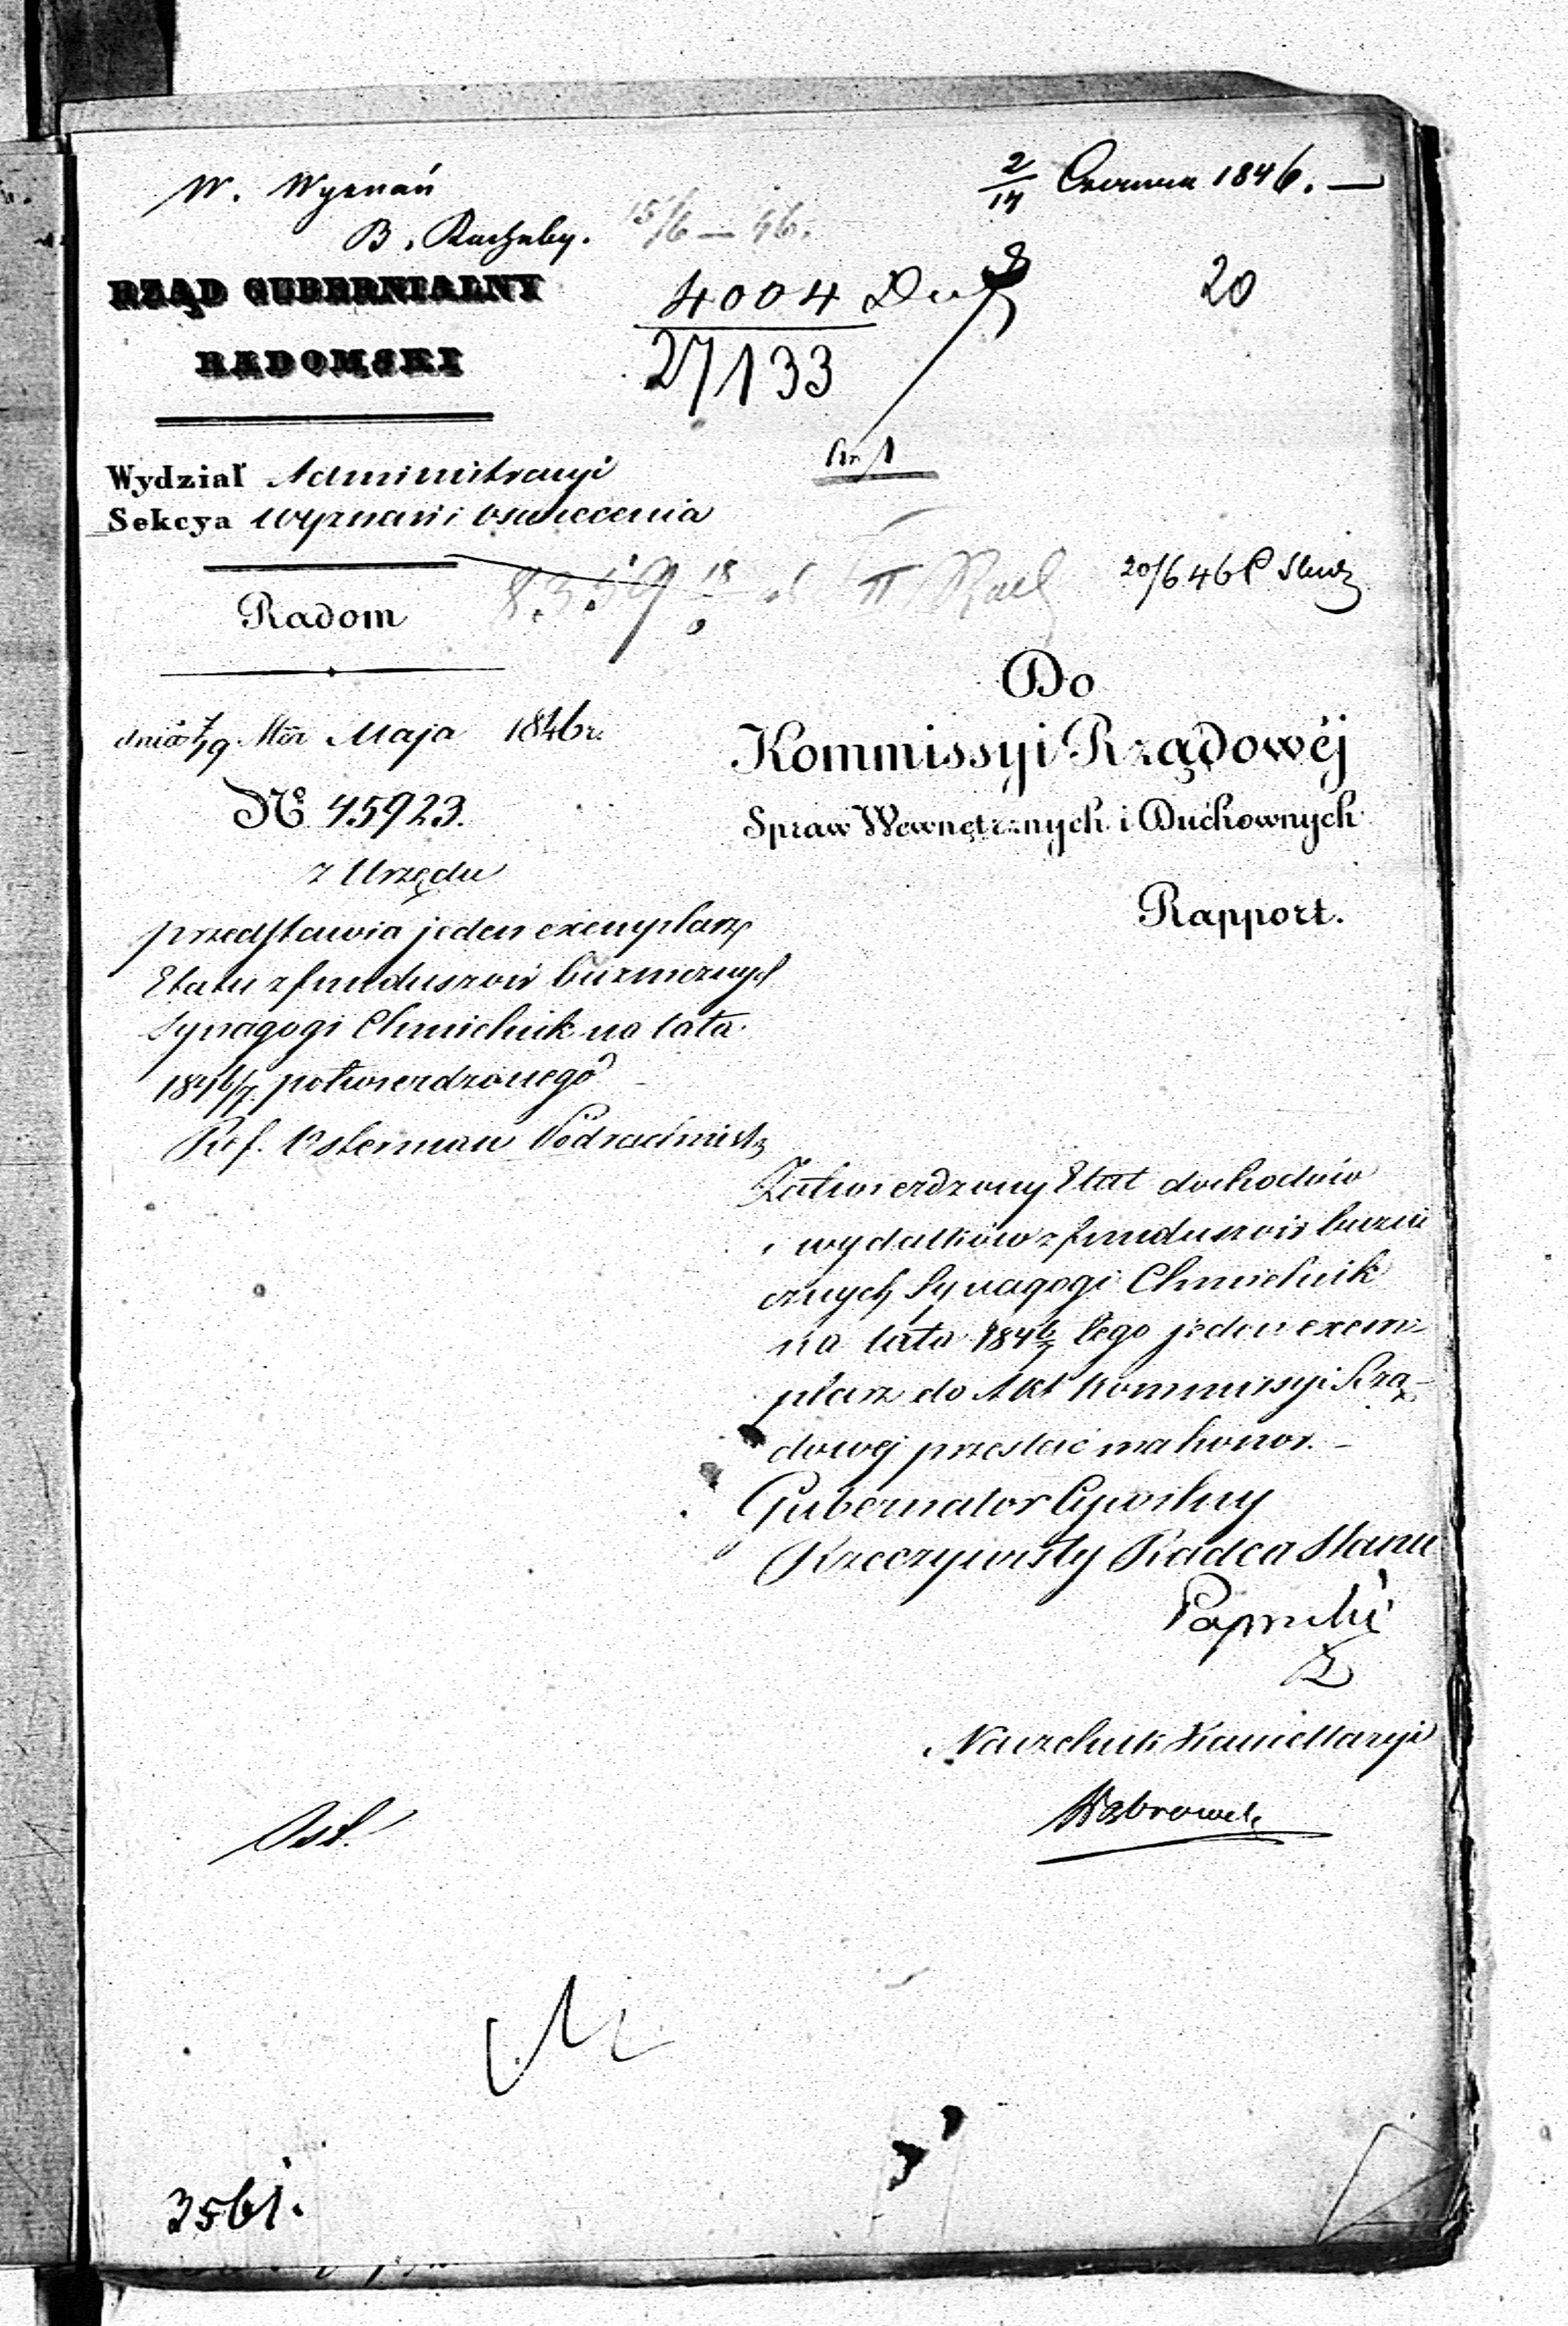 W. Wyznań
B. Rachuby.
2/14 Czerwca 1846. —
15/6 — 46.
20
4004
27133
RZĄD GUBERNIALNY
RADOMSKI
Wydział Administracyi
Sekcya Wyznań i oświecenia
Radom
20/6 46
Do
Kommissyi Rządowéj
Spraw Wewnętrznych i Duchownych
Rapport.
dnia 7/19 Maja 1846 r.
No 45923.
z Urzędu
przedstawia jeden exemplarz
Etatu z funduszów bużnicznych
Synagogi Chmielnik na lata
1846/7. potwierdzonego
Ref. Osterman
Zatwierdzony Etat dochodów
i wydatków z funduszów bużni
cznych Synagogi Chmielnik
na lata 1846/7 tego jeden exem-
plarz do Akt Kommissyi Rzą-
dowej przesłać ma honor. —
Gubernator Cywilny
Rzeczywisty Radca Stanu
Naczelnik Kancellaryi
3561.